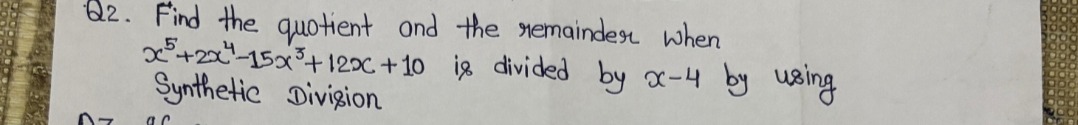 Q2. Find the quotient and the remainder when
x⁵+2x⁴-15x³+12x+10 is divided by x-4 by using
Synthetic Division